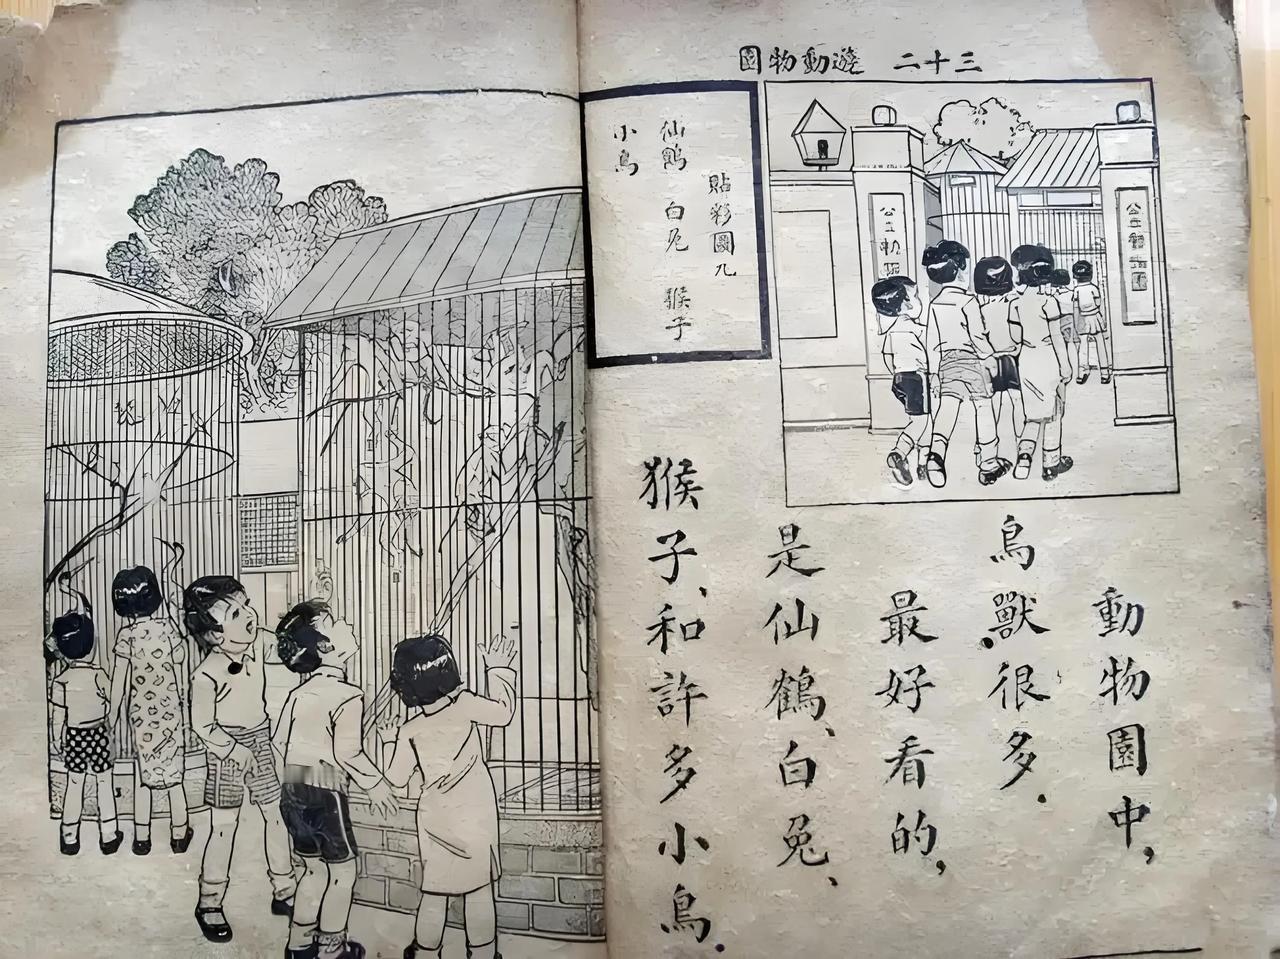 三十二 遊動物園
公立動物園
動物園中，
鳥獸很多．
最好看的，
是仙鶴、白兔、
猴子、和許多小鳥．
貼彩圖九
仙鶴 白兔 猴子
小鳥